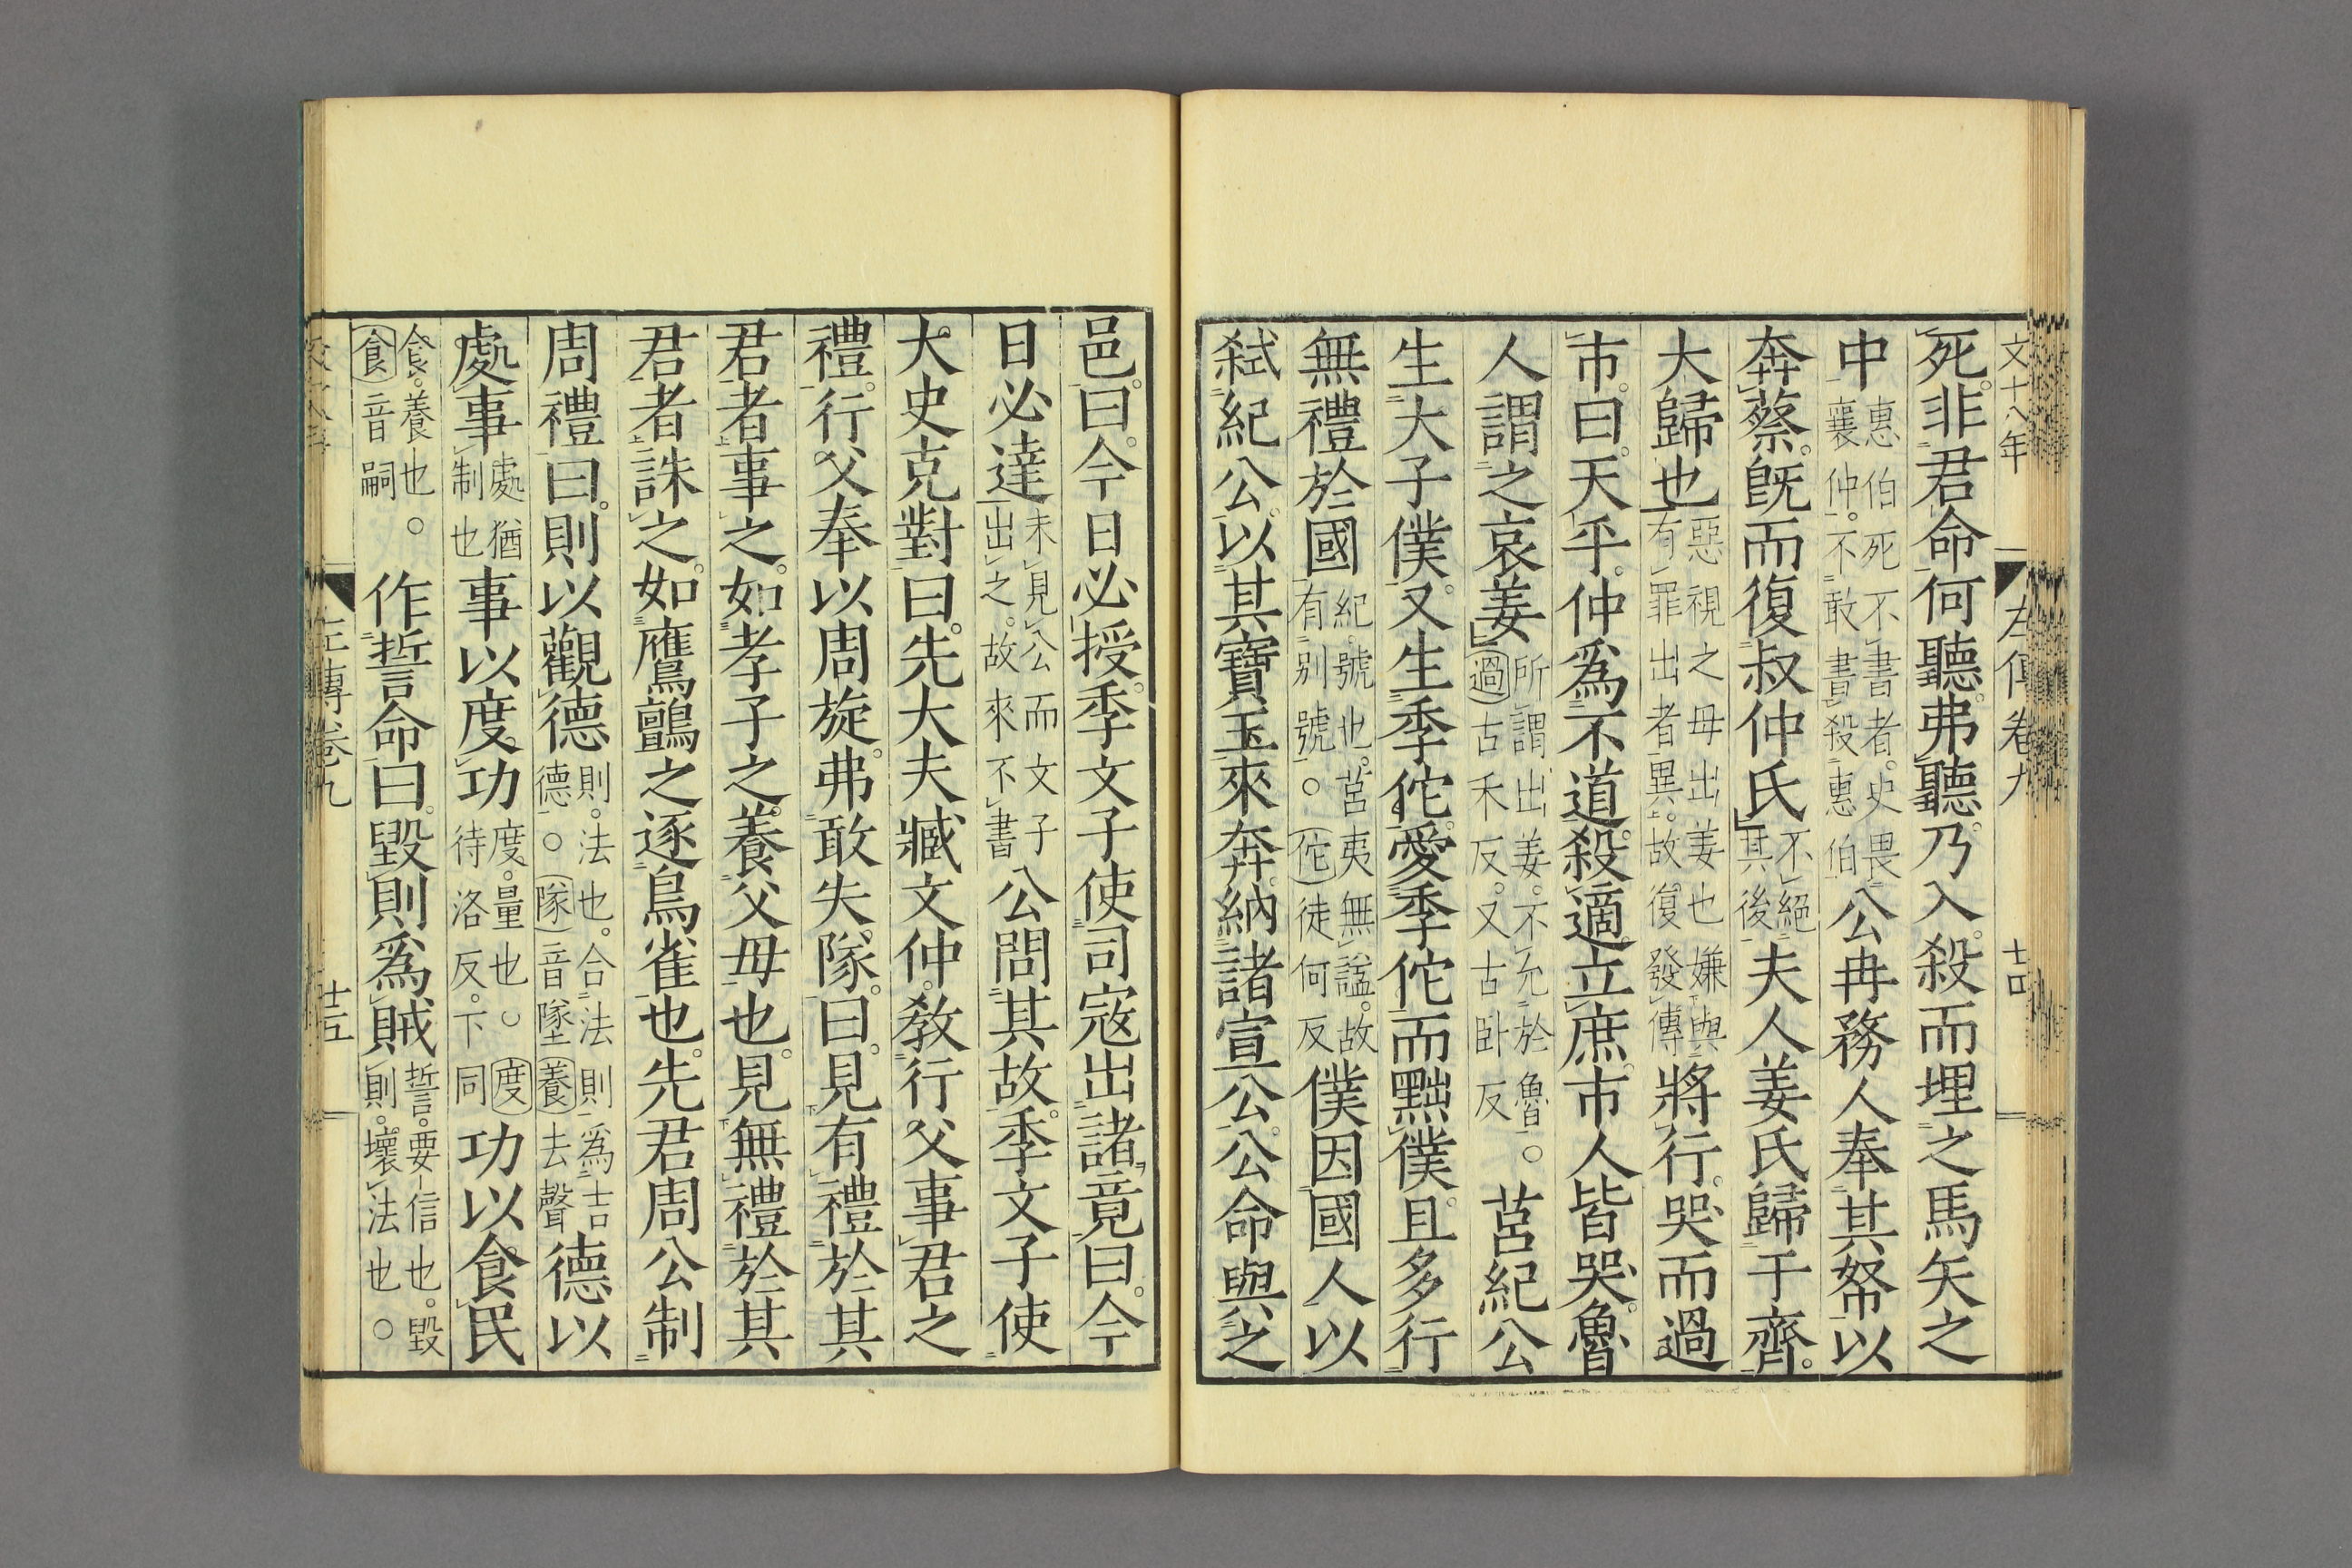 文十八年 左傳卷九 十四
死。非君命何聽。弗聽。乃入。殺而埋之馬矢之
中惠伯死不書者。史畏襄仲。不敢書殺惠伯公冉務人奉其帑以
奔蔡。旣而復叔仲氏不絕其後夫人姜氏歸于齊。
大歸也惡視之母出姜也嫌與有罪出者異。故復發傳將行。哭而過
市。曰。天乎。仲爲不道。殺適立庶。市人皆哭。魯
人謂之哀姜所謂出姜。不允於魯。○過古禾反。又古臥反莒紀公
生大子僕。又生季佗。愛季佗而黜僕。且多行
無禮於國紀。號也。莒夷無謚。故有別號。○佗徒何反僕因國人以
弒紀公。以其寶玉來奔。納諸宣公。公命與之
邑。曰。今日必授。季文子使司寇出諸竟。曰。今
日必達未見公而文子出之。故來不書公問其故。季文子使
大史克對曰。先大夫臧文仲。教行父事君之
禮。行父奉以周旋。弗敢失隊。曰。見有禮於其
君者。事之。如孝子之養父母也。見無禮於其
君者。誅之。如鷹鸇之逐鳥雀也。先君周公制
周禮曰。則以觀德則。法也。合法則爲吉德。○隊音墜養去聲德以
處事處猶制也事以度功度。量也。○度待洛反。下同功以食民
食。養也。○食音嗣作誓命曰。毀則爲賊誓。要信也。毀則。壞法也。○
左傳卷九 十五